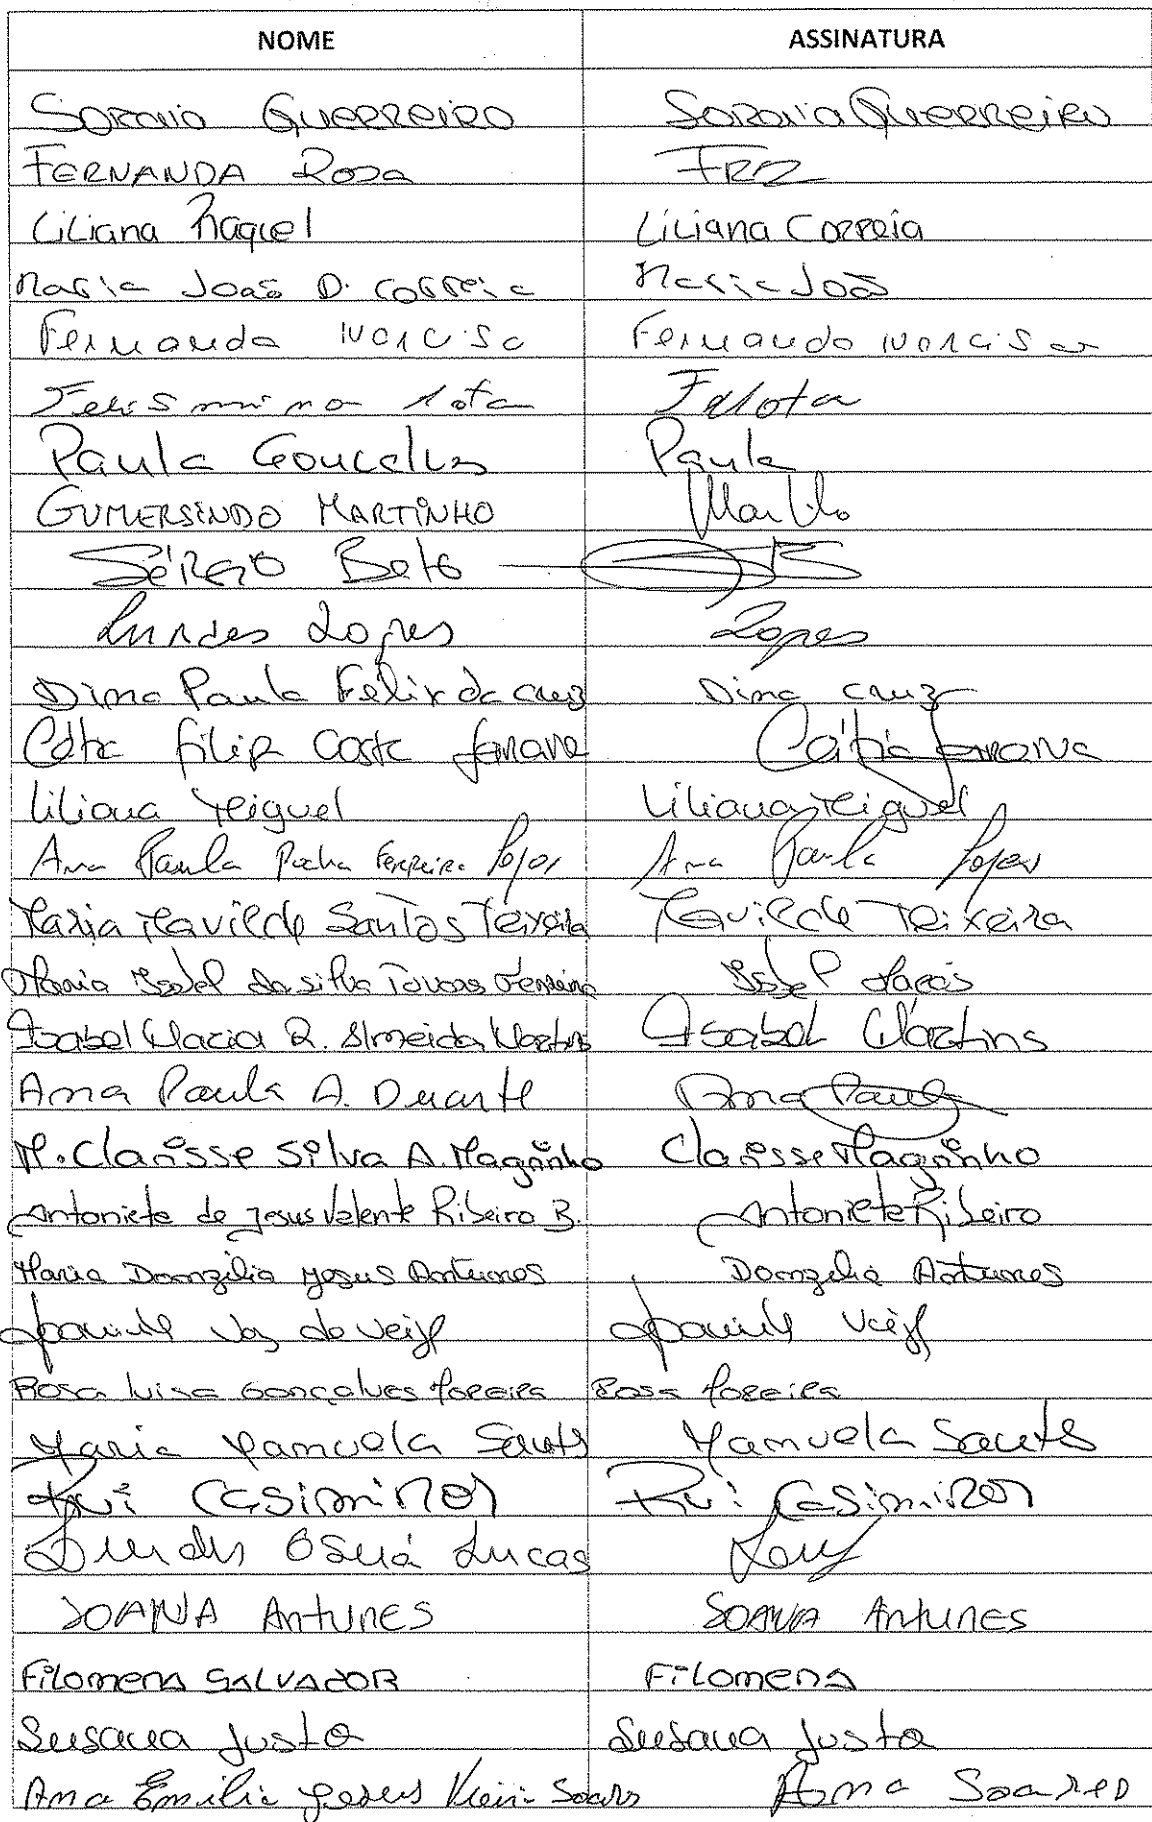 NOME ASSINATURA
Soraia Guerreiro Soraia Guerreiro
FERNANDA Rosa
Liliana Raquel Liliana Correia
Maria João D. Correia Maria João
Fernanda Narciso Fernanda Narciso
Felismina Lota FLota
Paula Goncalves Paula
GUMERSINDO MARTINHO
Sérgio Beto
Lurdes Lopes Lopes
Dina Paula Felix da Cruz Dina Cruz
Cátia Filip Costa Cátia
Liliana Miguel Liliana Miguel
Ana Paula Rocha Ferreira Ana Paula
Maria Mavilde Santos Teixeira Mavilde Teixeira
Maria Isabel da Silva Tavares Ferreira Isabel
Isabel Maria R. Almeida Martins Isabel Martins
Ana Paula A. Duarte Ana Paula
M. Clarisse Silva A. Magrinho Clarisse Magrinho
Antoniete de Jesus Valente Ribeiro B. Antoniete Ribeiro
Maria Domzilia Jesus Antunes Domzilia Antunes
Vaz da Veiga Veiga
Rosa Luisa Gonçalves Pereira Rosa Pereira
Maria Manuela Santos Manuela Santos
Rui Casimiro Rui Casimiro
Lurdes Lucas
JOANA Antunes JOANA Antunes
Filomena SALVADOR Filomena
Susana Justo Susana Justo
Ana Emilia Jesus Vieira Soares Ana Soares